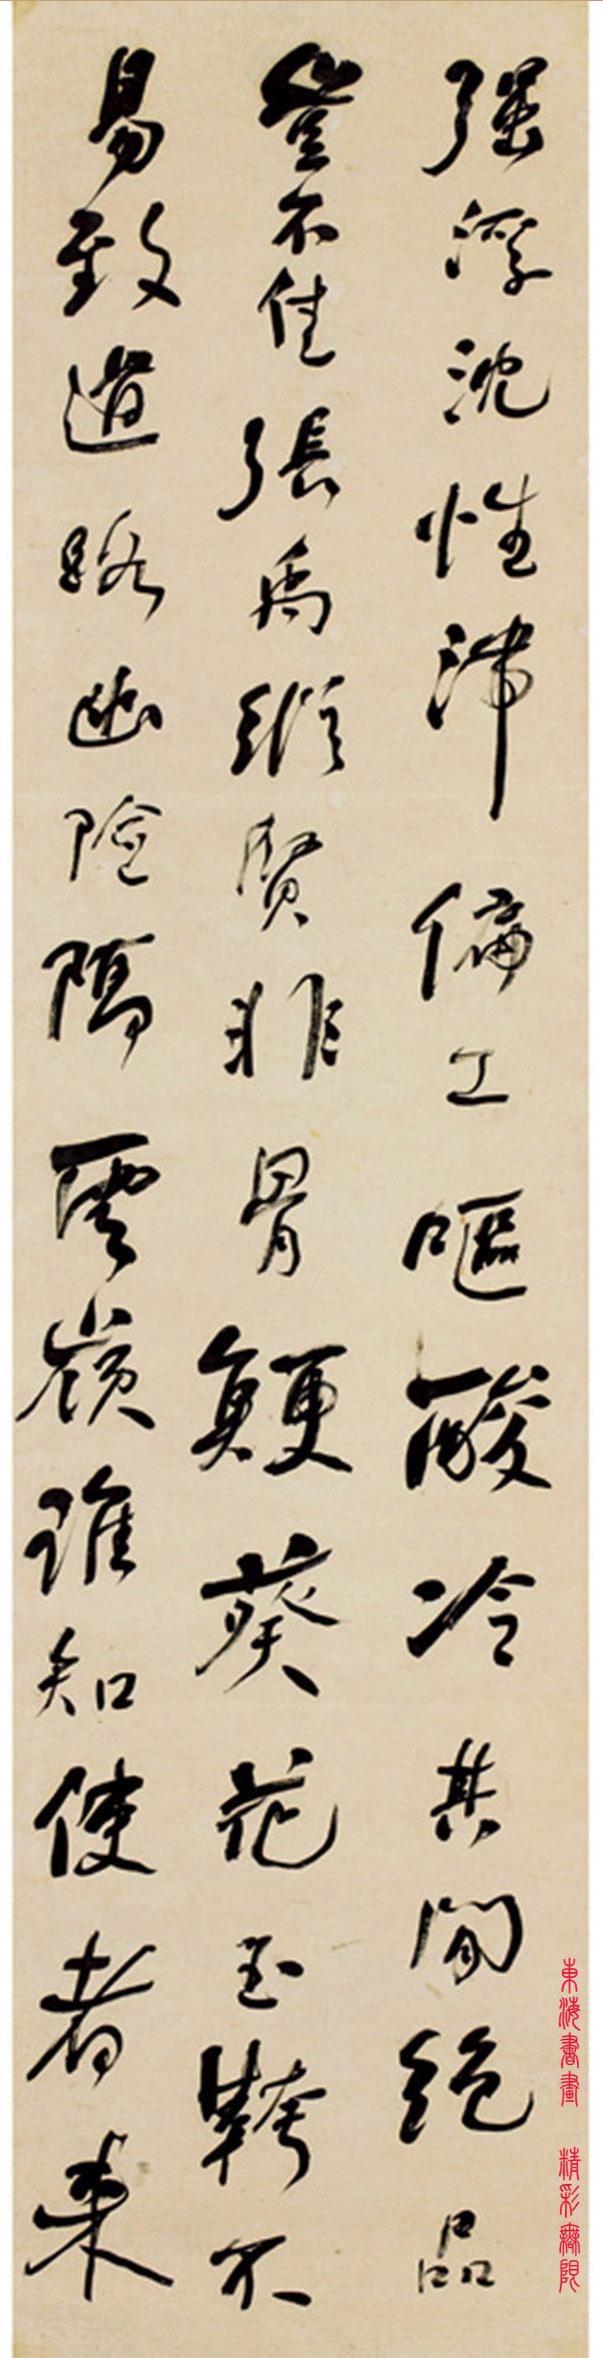 强浮沈性滯偏工嘔酸冷其間絶品
豈不佳張禹縱賢非骨鯁葵花玉不
易致道路幽險隔雲嶺誰知使者来
東海書畫 精彩無限